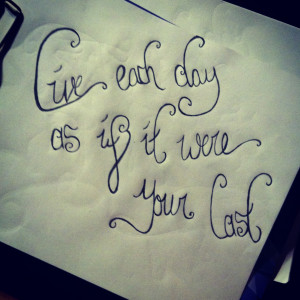 Live each day
as if it were
your last